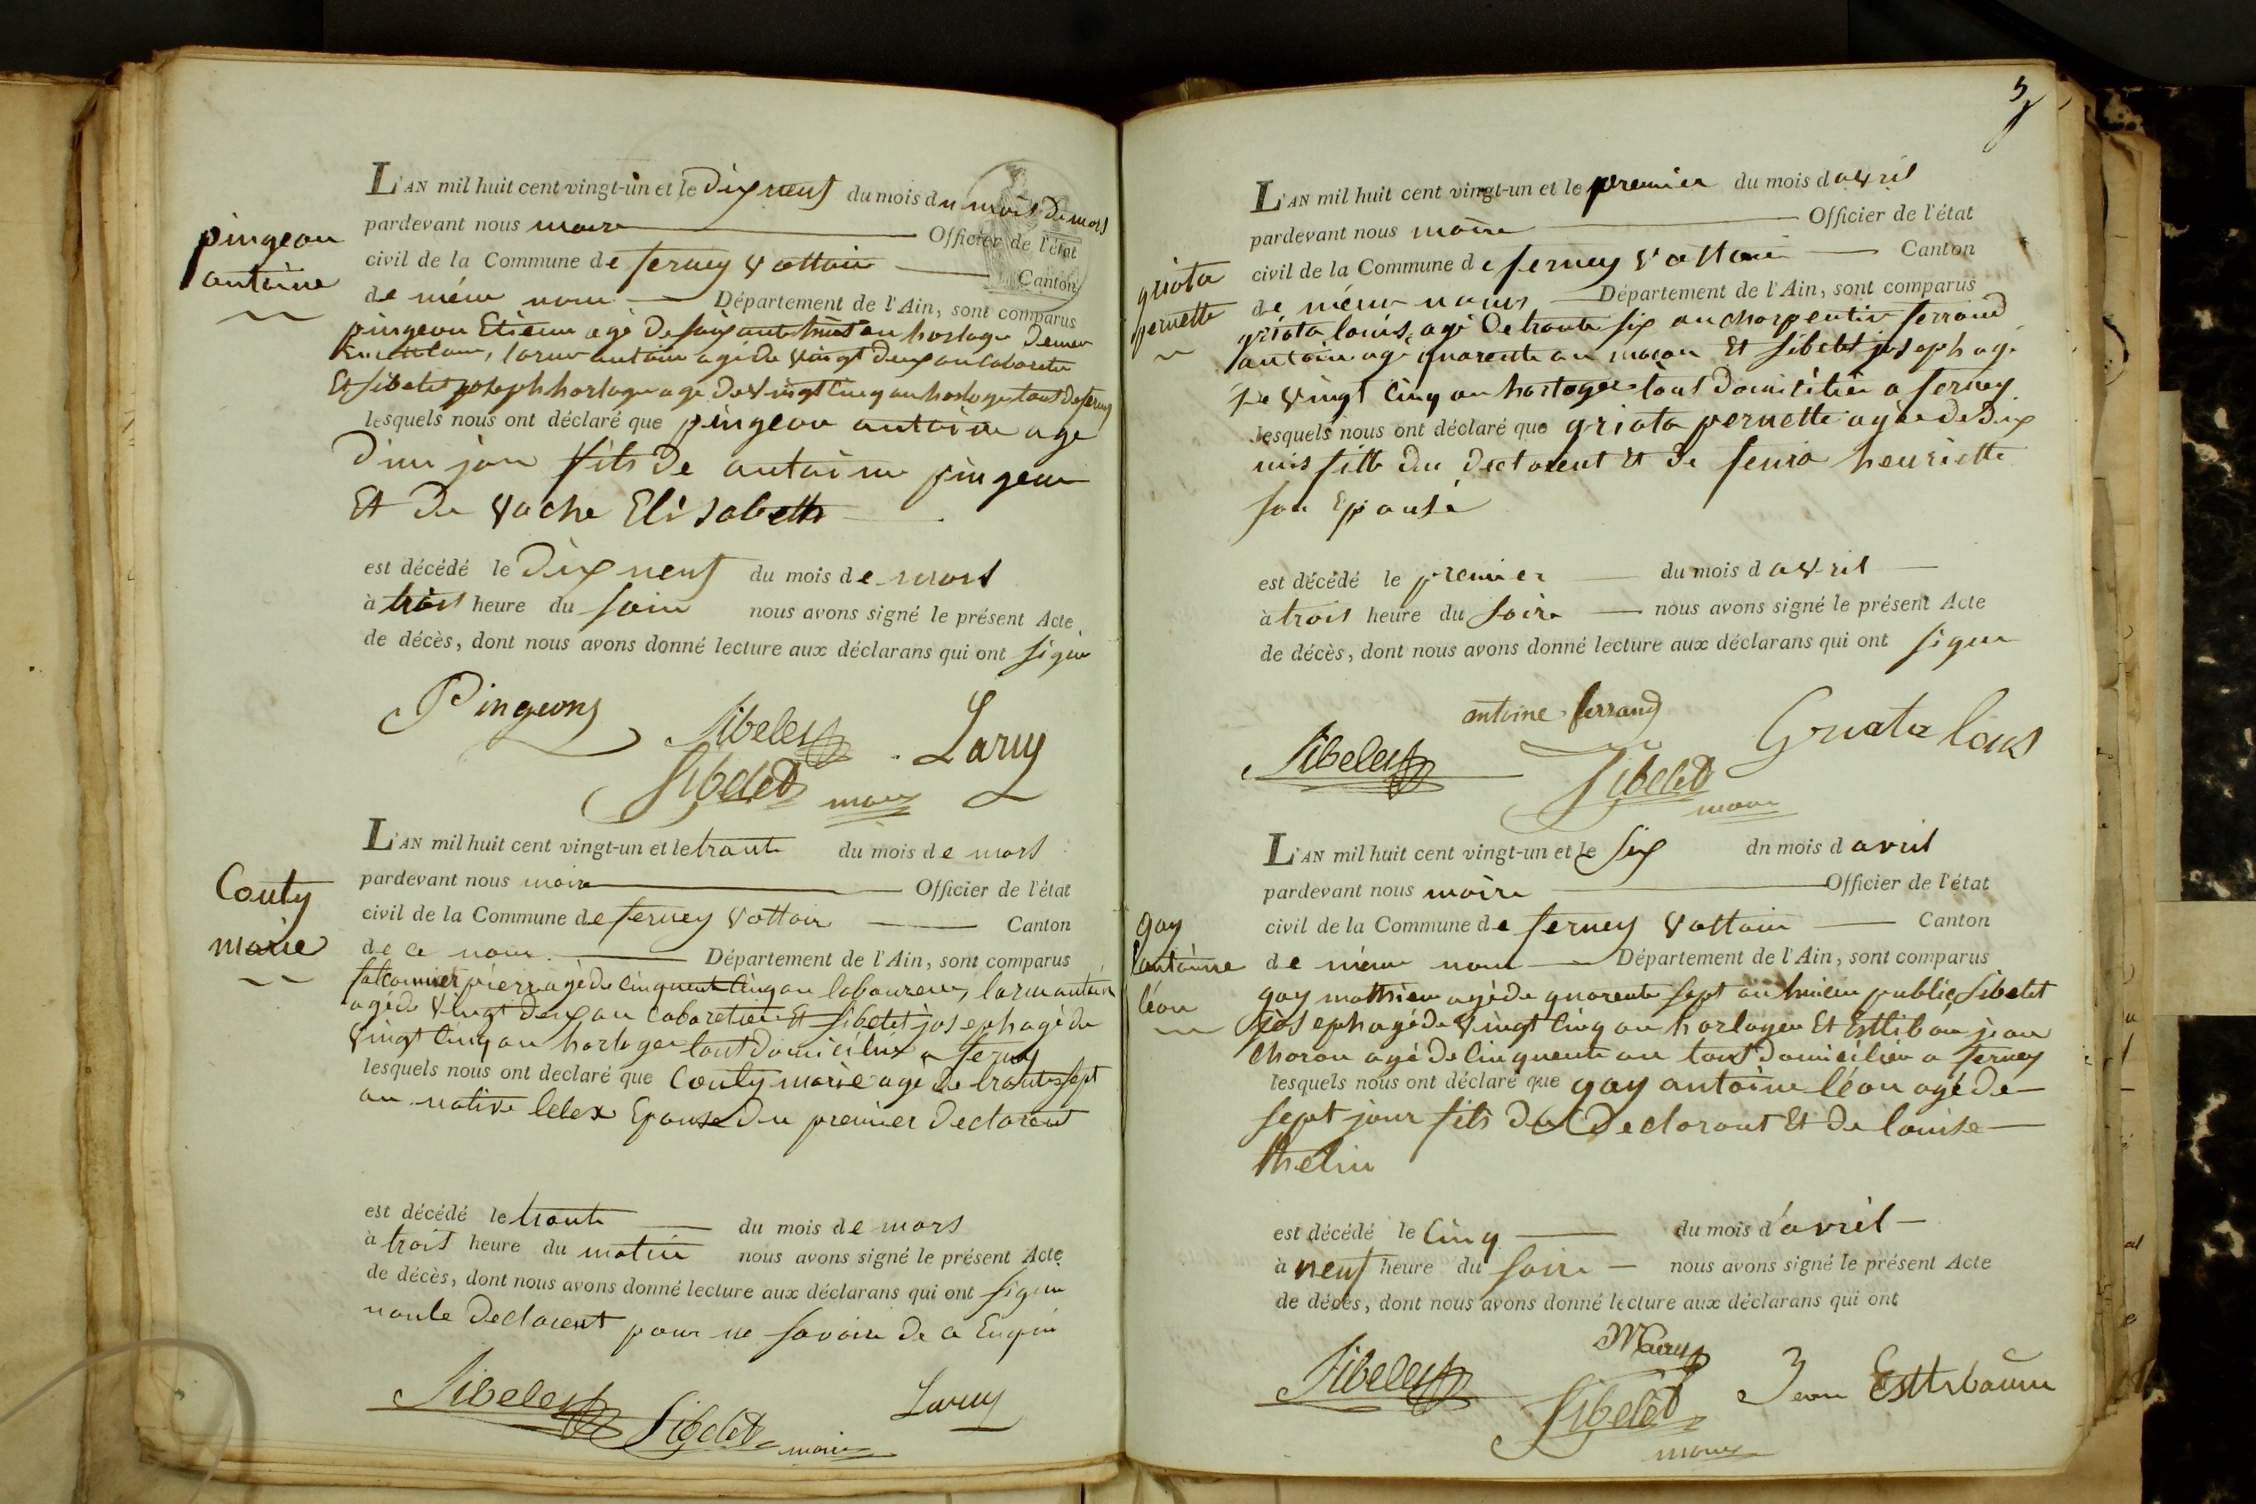 pingeon
antoine
L'AN mil huit cent vingt-un et le dix neuf du mois du mois de mars
pardevant nous maire Officier de l'état
civil de la Commune de ferney voltaire Canton
de même nom Département de l'Ain, sont comparus
pingeon Etienne agé de soixante huit an horloger
larue antoine agé de vingt deux an cabaretier
Et sibelet joseph horloger agé de vingt cinq an horloger tout de ferney
lesquels nous ont déclaré que pingeon antoine age
d'un jour fils de antoine pingeon
Et de vache Elisabeth
est décédé le dix neuf du mois de mars
à trois heure du soir nous avons signé le présent Acte
de décès, dont nous avons donné lecture aux déclarans qui ont signé
Pingeons
Sibelet
Laruy
Sibelet maire
Couty
marie
L'AN mil huit cent vingt-un et le trante du mois de mars
pardevant nous maire Officier de l'état
civil de la Commune de ferney voltaire Canton
de ce nom. Département de l'Ain, sont comparus
falconnier pierre agé de cinquente cinq an laboureur, larue antoine
agé de vingt deux an cabaretier Et sibelet joseph agé de
vingt cinq an horloger tout domicilies a ferney
lesquels nous ont declaré que Couty marie agé de trante sept
an native lelex Epouse du premier declarent
est décédé le trante du mois de mars
à trois heure du matin nous avons signé le présent Acte
de décès, dont nous avons donné lecture aux déclarans qui ont signé
non le declarent pour ne savoire de ce Enquis
Sibelet
Sibelet maire
Laruy
5
griota
pernette
L'AN mil huit cent vingt-un et le premier du mois d avril
pardevant nous maire Officier de l'état
civil de la Commune de ferney voltaire Canton
de même nom Département de l'Ain, sont comparus
griota louis, agé de trante six an charpentier ferrand
antoine agé quarente an maçon Et sibelet joseph agé
de vingt cinq an horloger tout domicilié a ferney
lesquels nous ont déclaré que griota pernette agée de dix
mis fille du declarent Et de henriette
son Epouse
est décédé le premier du mois d avril
à trois heure du soire nous avons signé le présent Acte
de décès, dont nous avons donné lecture aux déclarans qui ont signé
antoine ferrand
Griata louis
Sibelet
Sibelet
maire
gay
antoine
léon
L'AN mil huit cent vingt-un et le six dn mois d avril
pardevant nous maire Officier de l'état
civil de la Commune de ferney voltaire Canton
de même nom Département de l'Ain, sont comparus
gay mathieu agé de quarente sept an public, Sibelet
joseph agé de vingt cinq an horloger Et Esttibaum jean
charon agé de cinquente an tous domicilié a ferney
lesquels nous ont déclaré que gay antoine léon agé de
sept jour fils du declarant Et de louise
thelin
est décédé le cinq du mois d'avril
à neuf heure du soire nous avons signé le présent Acte
de décès, dont nous avons donné lecture aux déclarans qui ont
Sibelet
Jean Esttibaum
Sibelet
maire